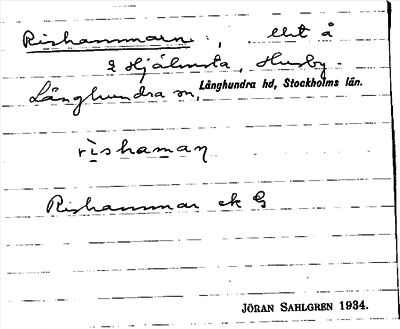 Rishammarn:, utt å
2 Hjälmsta, Husby-
Långhundra sn, Långhundra hd, Stockholms län.
rishaman
Rishammar ek G
JÖRAN SAHLGREN 1934.